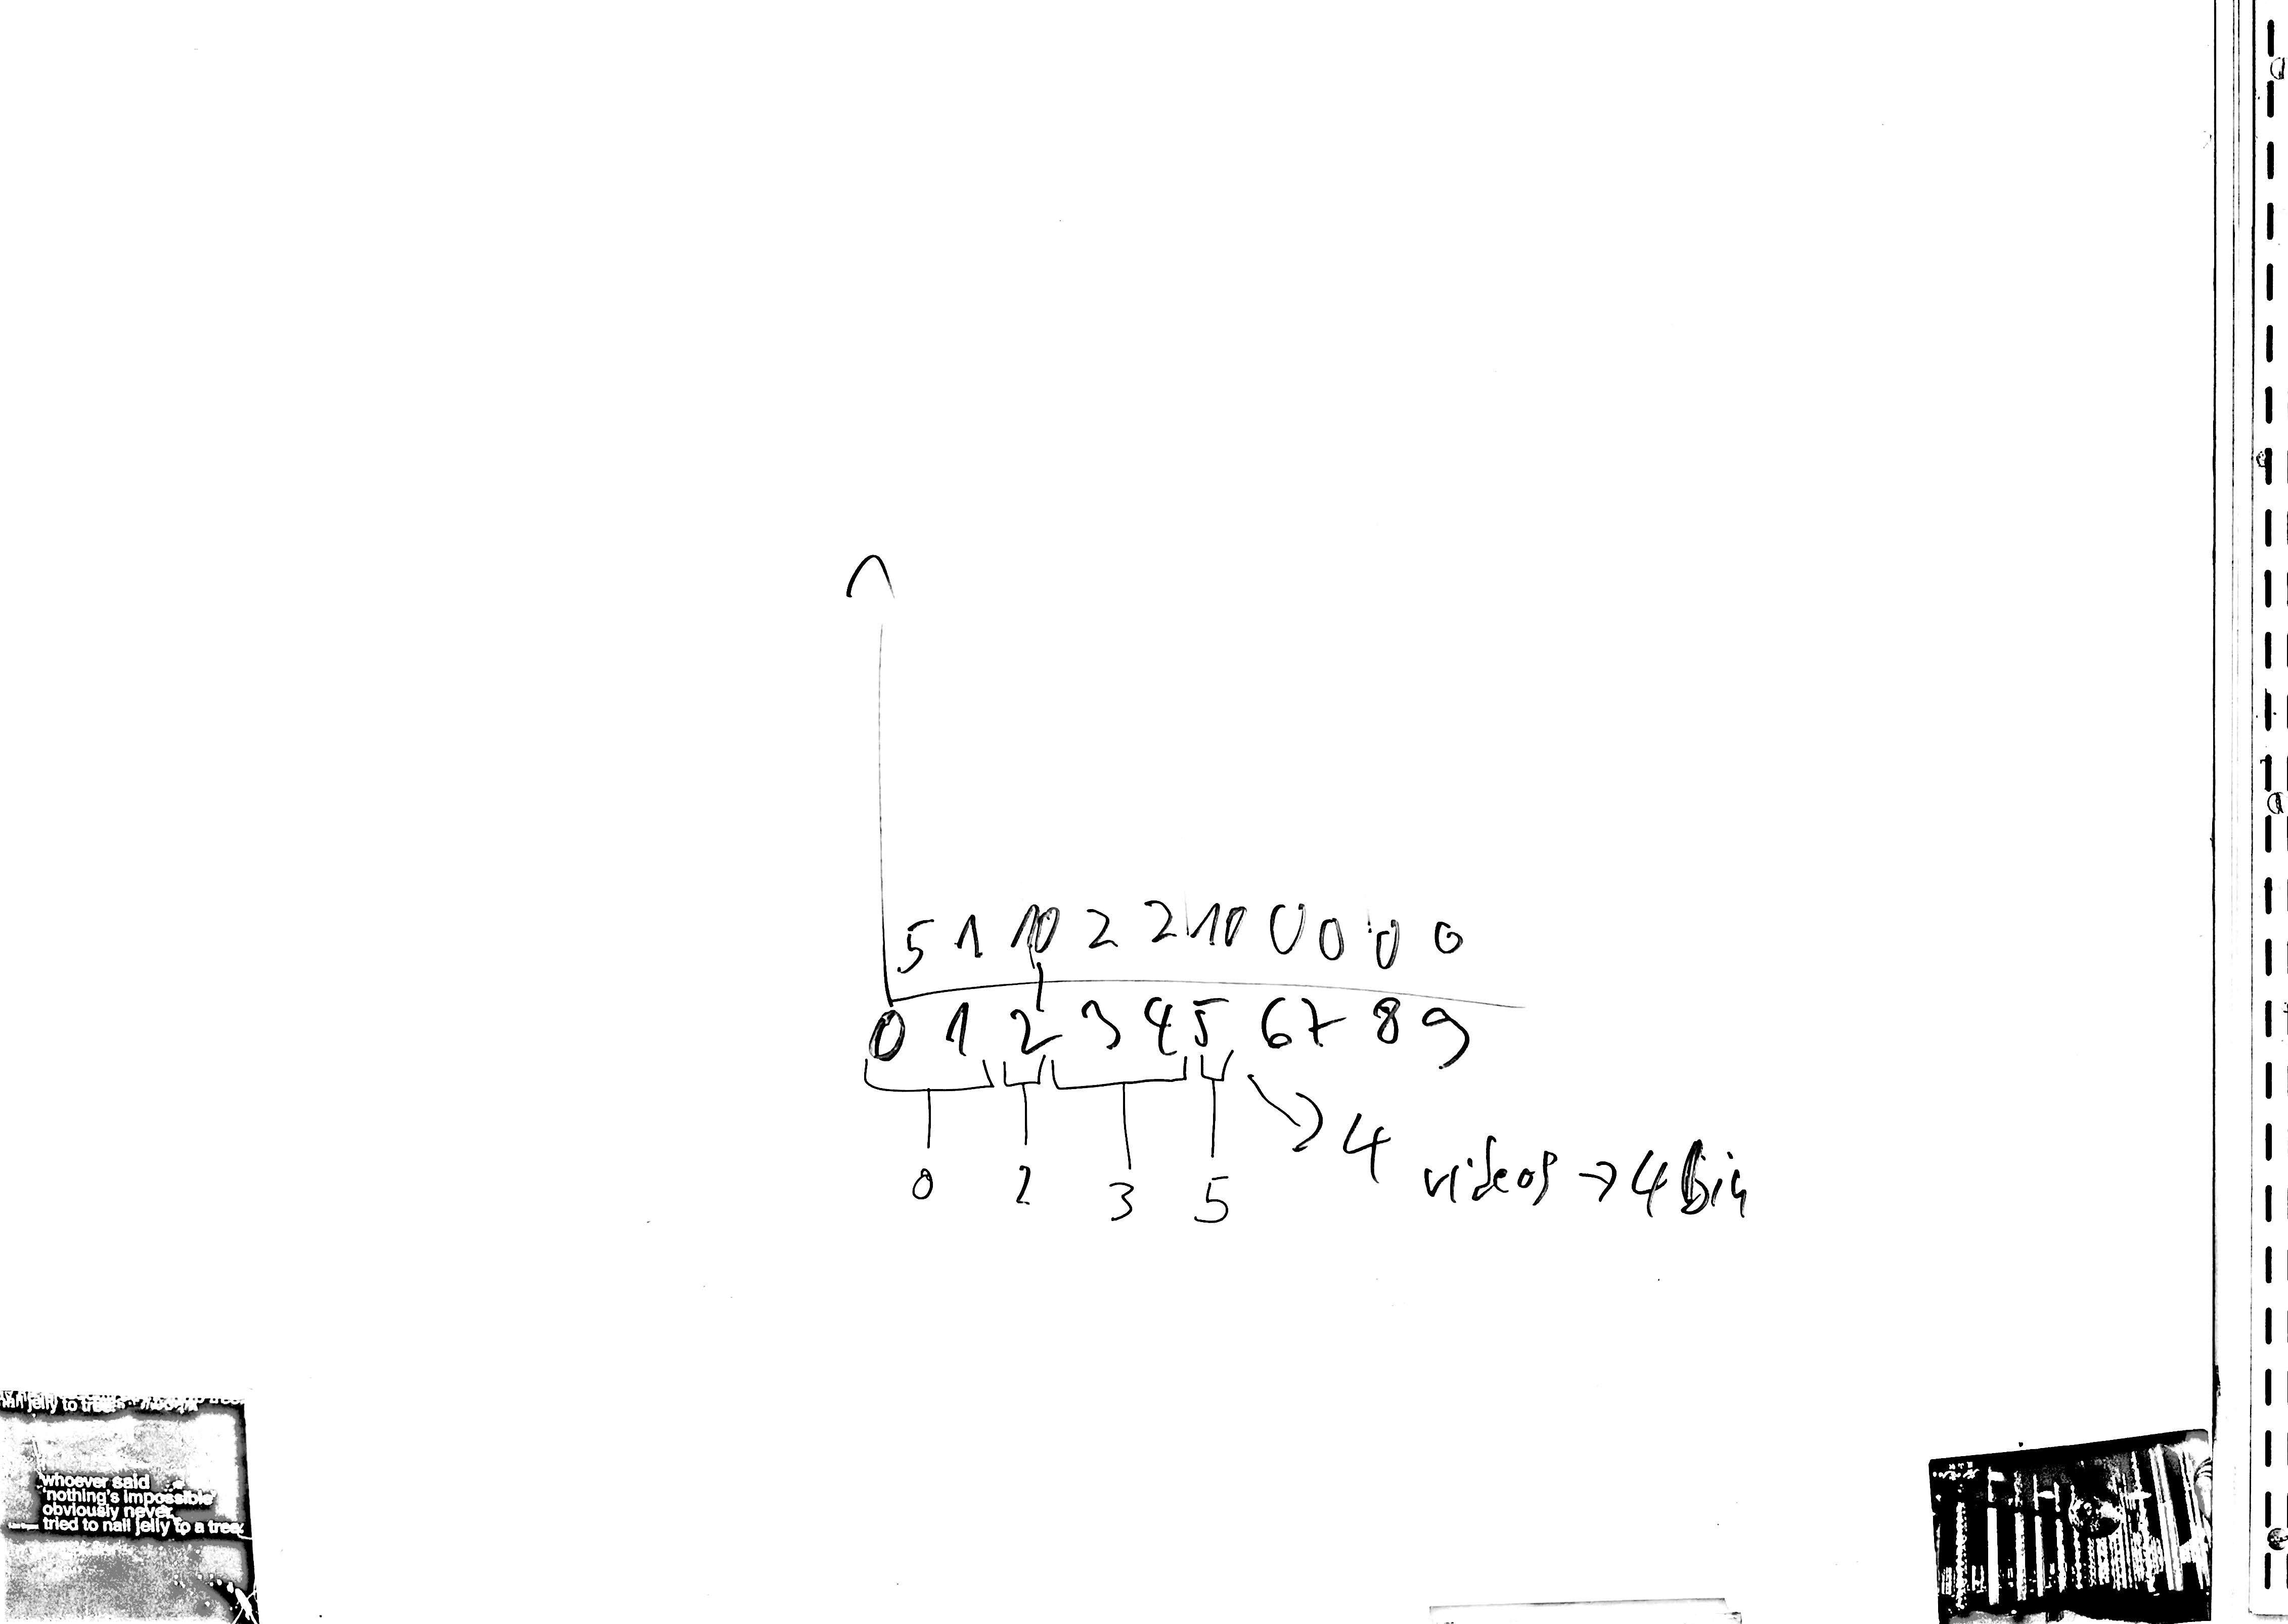 5 1 10 2 2 10 0 0 0 0
0 1 2 3 4 5 6 7 8 9
0 2 3 5
4 videos → 4 bin
nail jelly to tree
whoever said
'nothing's impossible'
obviously never
tried to nail jelly to a tree